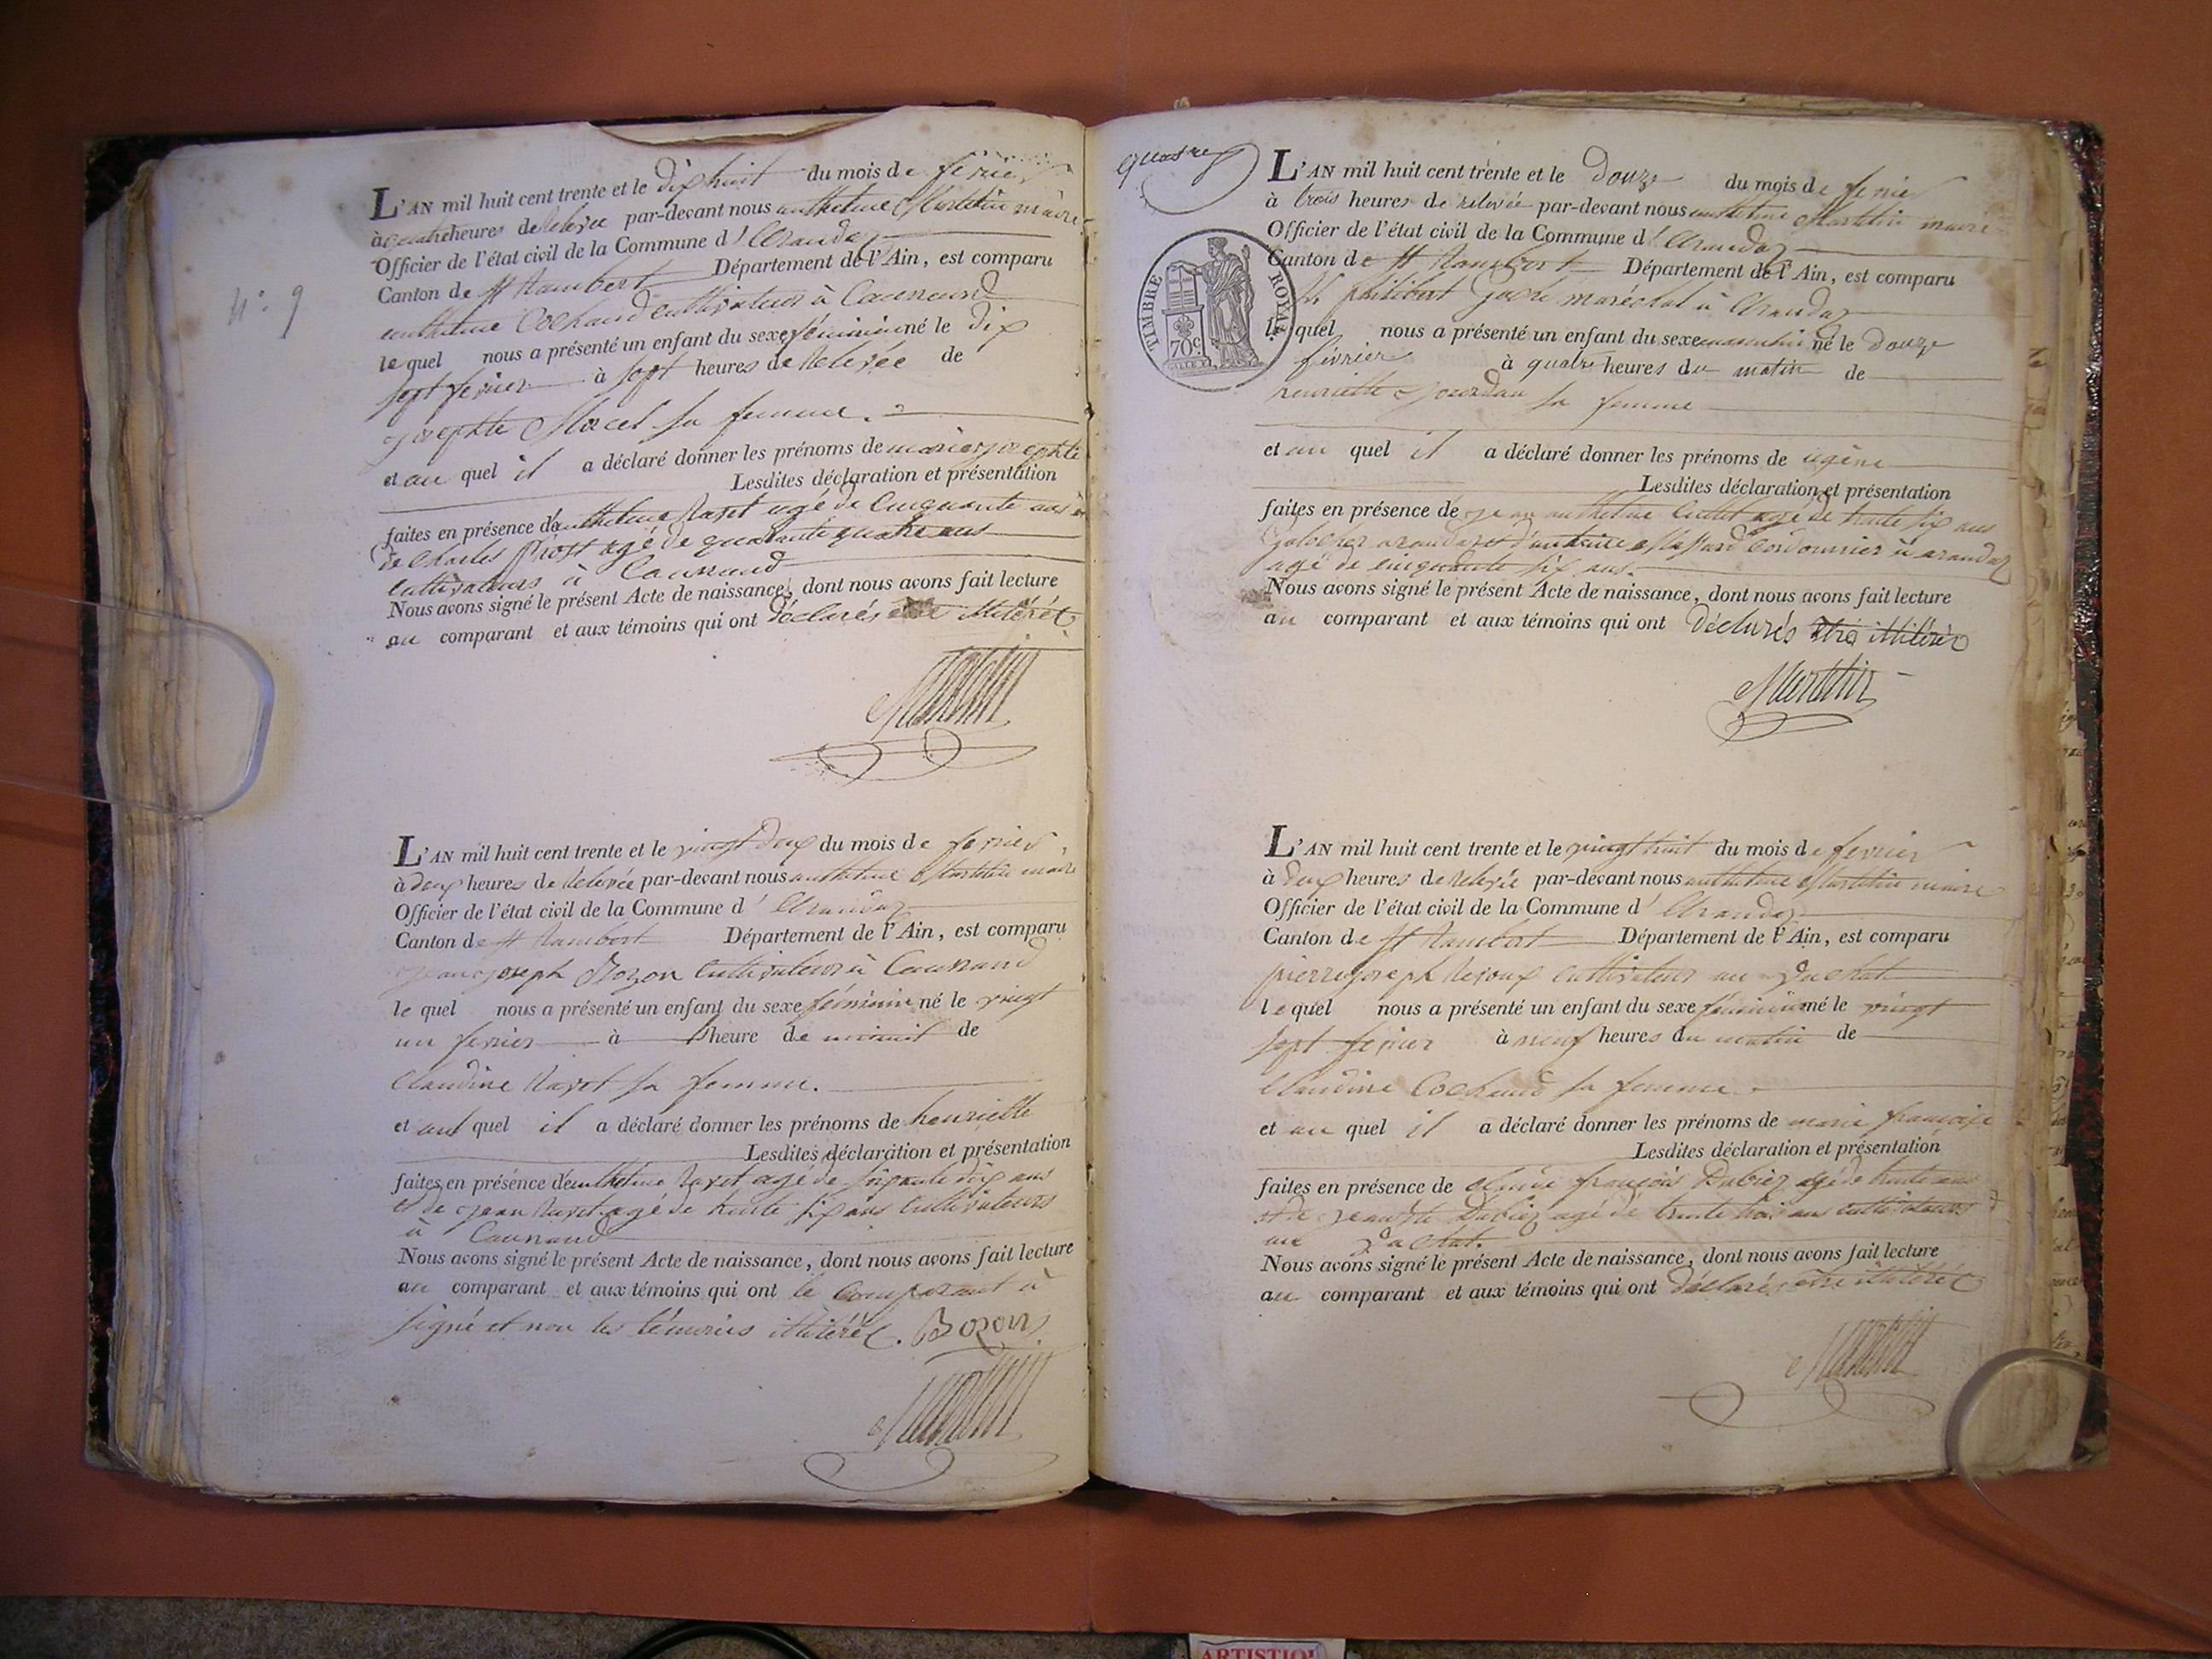 N.º 9
L'AN mil huit cent trente et le dix huit du mois de fevrier
à quatre heures de Relevée par-devant nous anthelme Martelin maire
Officier de l'état civil de la Commune d'Arandaz
Canton de St Rambert Département de l'Ain, est comparu
anthelme Cochand cultivateur à
le quel nous a présenté un enfant du sexe féminin né le dix
sept fevrier à sept heures de Relevée de
josephte Morel sa femme.
et au quel il a déclaré donner les prénoms de marie josephte
Lesdites déclaration et présentation
faites en présence d'anthelme Ravet agé de Cinquante ans et
de Charles Prost agé de quarante quatre ans
cultivateurs à
Nous avons signé le présent Acte de naissance, dont nous avons fait lecture
au comparant et aux témoins qui ont déclarés être illitérés
Martelin
L'AN mil huit cent trente et le vingt deux du mois de fevrier
à deux heures de Relevée par-devant nous anthelme Martelin maire
Officier de l'état civil de la Commune d'Arandaz
Canton de St Rambert Département de l'Ain, est comparu
jean joseph Bozon Cultivateur à
le quel nous a présenté un enfant du sexe féminin né le vingt
un fevrier à heure de minuit de
Claudine Ravet sa femme.
et au quel il a déclaré donner les prénoms de henriette
Lesdites déclaration et présentation
faites en présence d'anthelme Ravet agé de soixante dix ans
et de jean Ravet agé de trente six ans Cultivateurs
à
Nous avons signé le présent Acte de naissance, dont nous avons fait lecture
au comparant et aux témoins qui ont le Comparant à
signé et non les témoins illitérés. Bozon
Martelin
quatre
TIMBRE ROYAL
70c
L'AN mil huit cent trente et le Douze du mois de fevrier
à trois heures de relevée par-devant nous anthelme Martelin maire
Officier de l'état civil de la Commune d'Arandaz
Canton de St Rambert Département de l'Ain, est comparu
philibert maréchal à Arandaz
le quel nous a présenté un enfant du sexe masculin né le douze
février à quatre heures du matin de
henriette jourdan sa femme
et au quel il a déclaré donner les prénoms de eugène
Lesdites déclaration et présentation
faites en présence de jean anthelme agé de trente six ans
arandaz et d'antoine Cordonnier à arandaz
agé de cinquante six ans.
Nous avons signé le présent Acte de naissance, dont nous avons fait lecture
au comparant et aux témoins qui ont déclarés être illitérés
Martelin
L'AN mil huit cent trente et le vingt huit du mois de fevrier
à deux heures de Relevée par-devant nous anthelme Martelin maire
Officier de l'état civil de la Commune d'Arandaz
Canton de St Rambert Département de l'Ain, est comparu
pierre joseph cultivateur au
le quel nous a présenté un enfant du sexe féminin né le vingt
sept fevrier à neuf heures du matin de
Claudine Cochand sa femme
et au quel il a déclaré donner les prénoms de marie françoise
Lesdites déclaration et présentation
faites en présence de claude françois Dubiez agé de trente ans
et de jean Dubiez agé de trente trois ans cultivateurs
au
Nous avons signé le présent Acte de naissance, dont nous avons fait lecture
au comparant et aux témoins qui ont déclarés être illitérés
Martelin